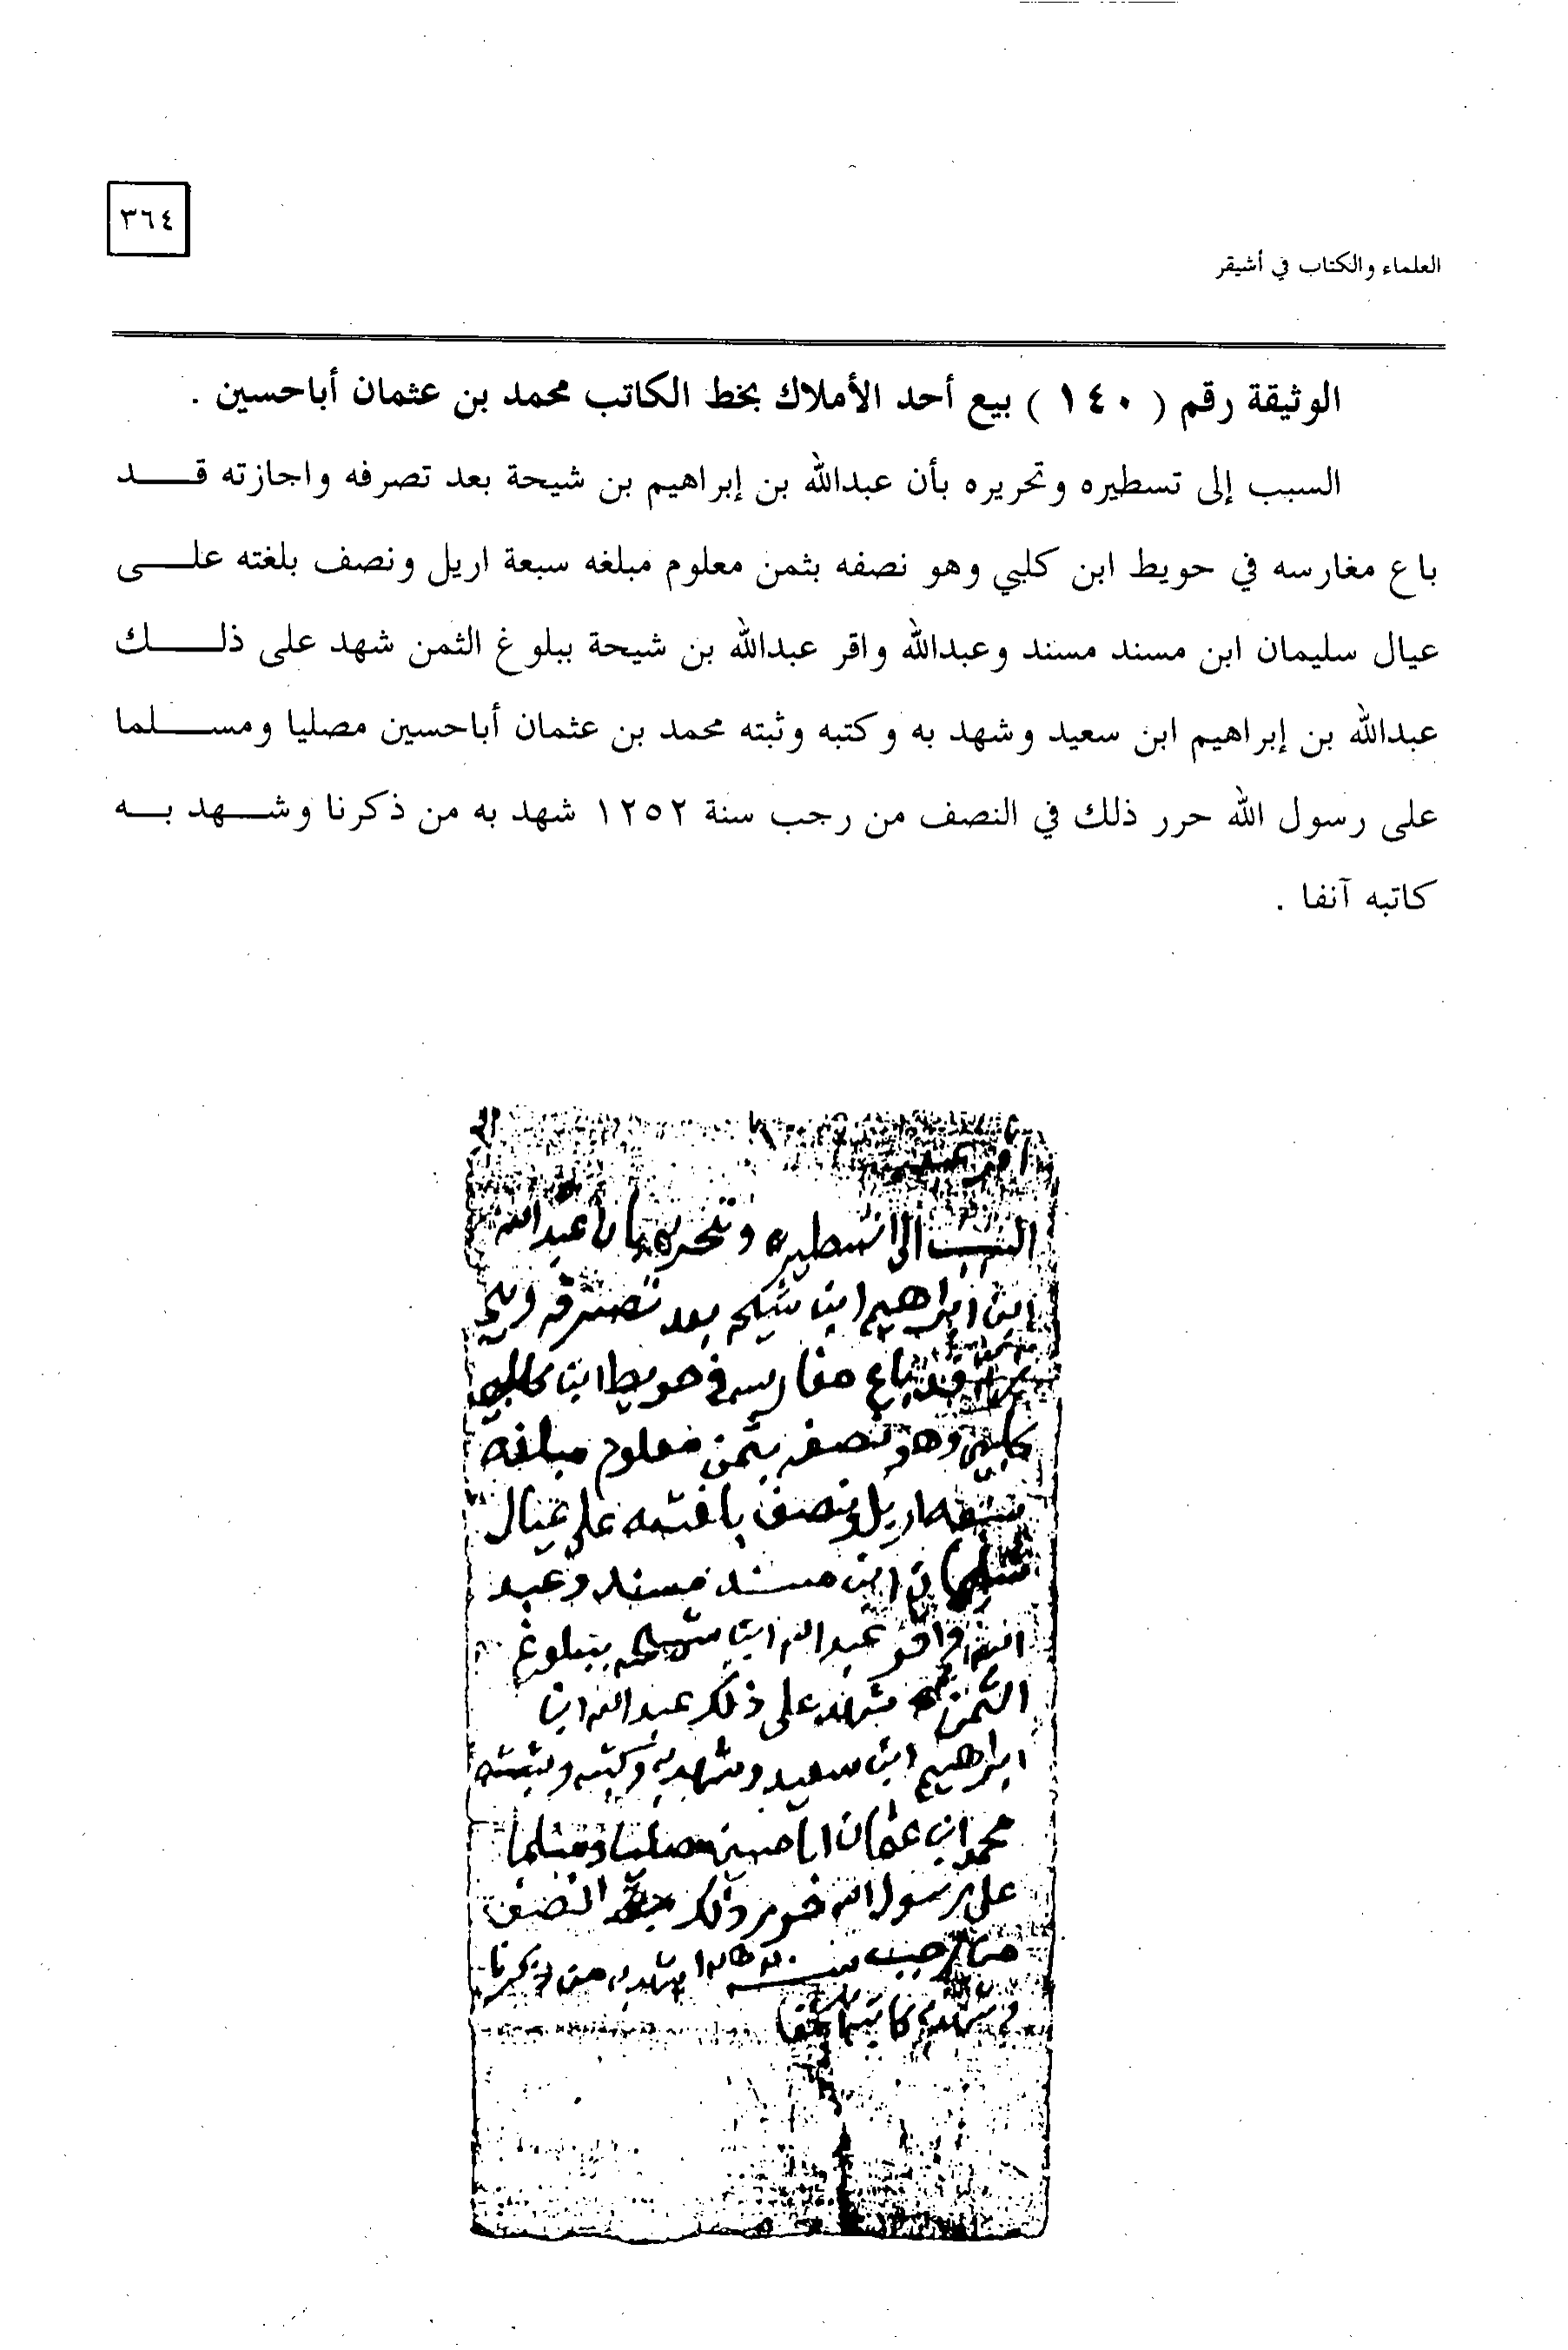 ٣٦٤
العلماء والكتاب في أشيقر
الوثيقة رقم ( ١٤٠ ) بيع أحد الأملاك بخط الكاتب محمد بن عثمان أباحسين .
السبب إلى تسطيره وتحريره بأن عبدالله بن إبراهيم بن شيحة بعد تصرفه واجازته قد
باع مغارسه في حويط ابن كلبي وهو نصفه بثمن معلوم مبلغه سبعة اريل ونصف بلغته على
عيال سليمان ابن مسند مسند وعبدالله واقر عبدالله بن شيحة ببلوغ الثمن شهد على ذلك
عبدالله بن إبراهيم ابن سعيد وشهد به وكتبه وثبته محمد بن عثمان أباحسين مصليا ومسلما
على رسول الله حرر ذلك في النصف من رجب سنة ١٢٥٢ شهد به من ذكرنا وشهد به
كاتبه آنفا .
السبب الى تسطيره وتحريره بان عبدالله
ابن ابراهيم ابن شيحه بعد تصرفه
قد باع مغارسه في حويط ابن
كلبي وهو نصفه بثمن معلوم مبلغه
سبعه اريل ونصف بلغته على عيال
سليمان ابن مسند مسند وعبد
الله واقر عبدالله ابن شيحه ببلوغ
الثمن شهد على ذلك عبدالله ابن
ابراهيم ابن سعيد وشهد به وكتبه وثبته
محمد ابن عثمان اباحسين مصليا ومسلما
على رسول الله حرر ذلك النصف
من رجب سنه شهد به من ذكرنا
وشهد به كاتبه